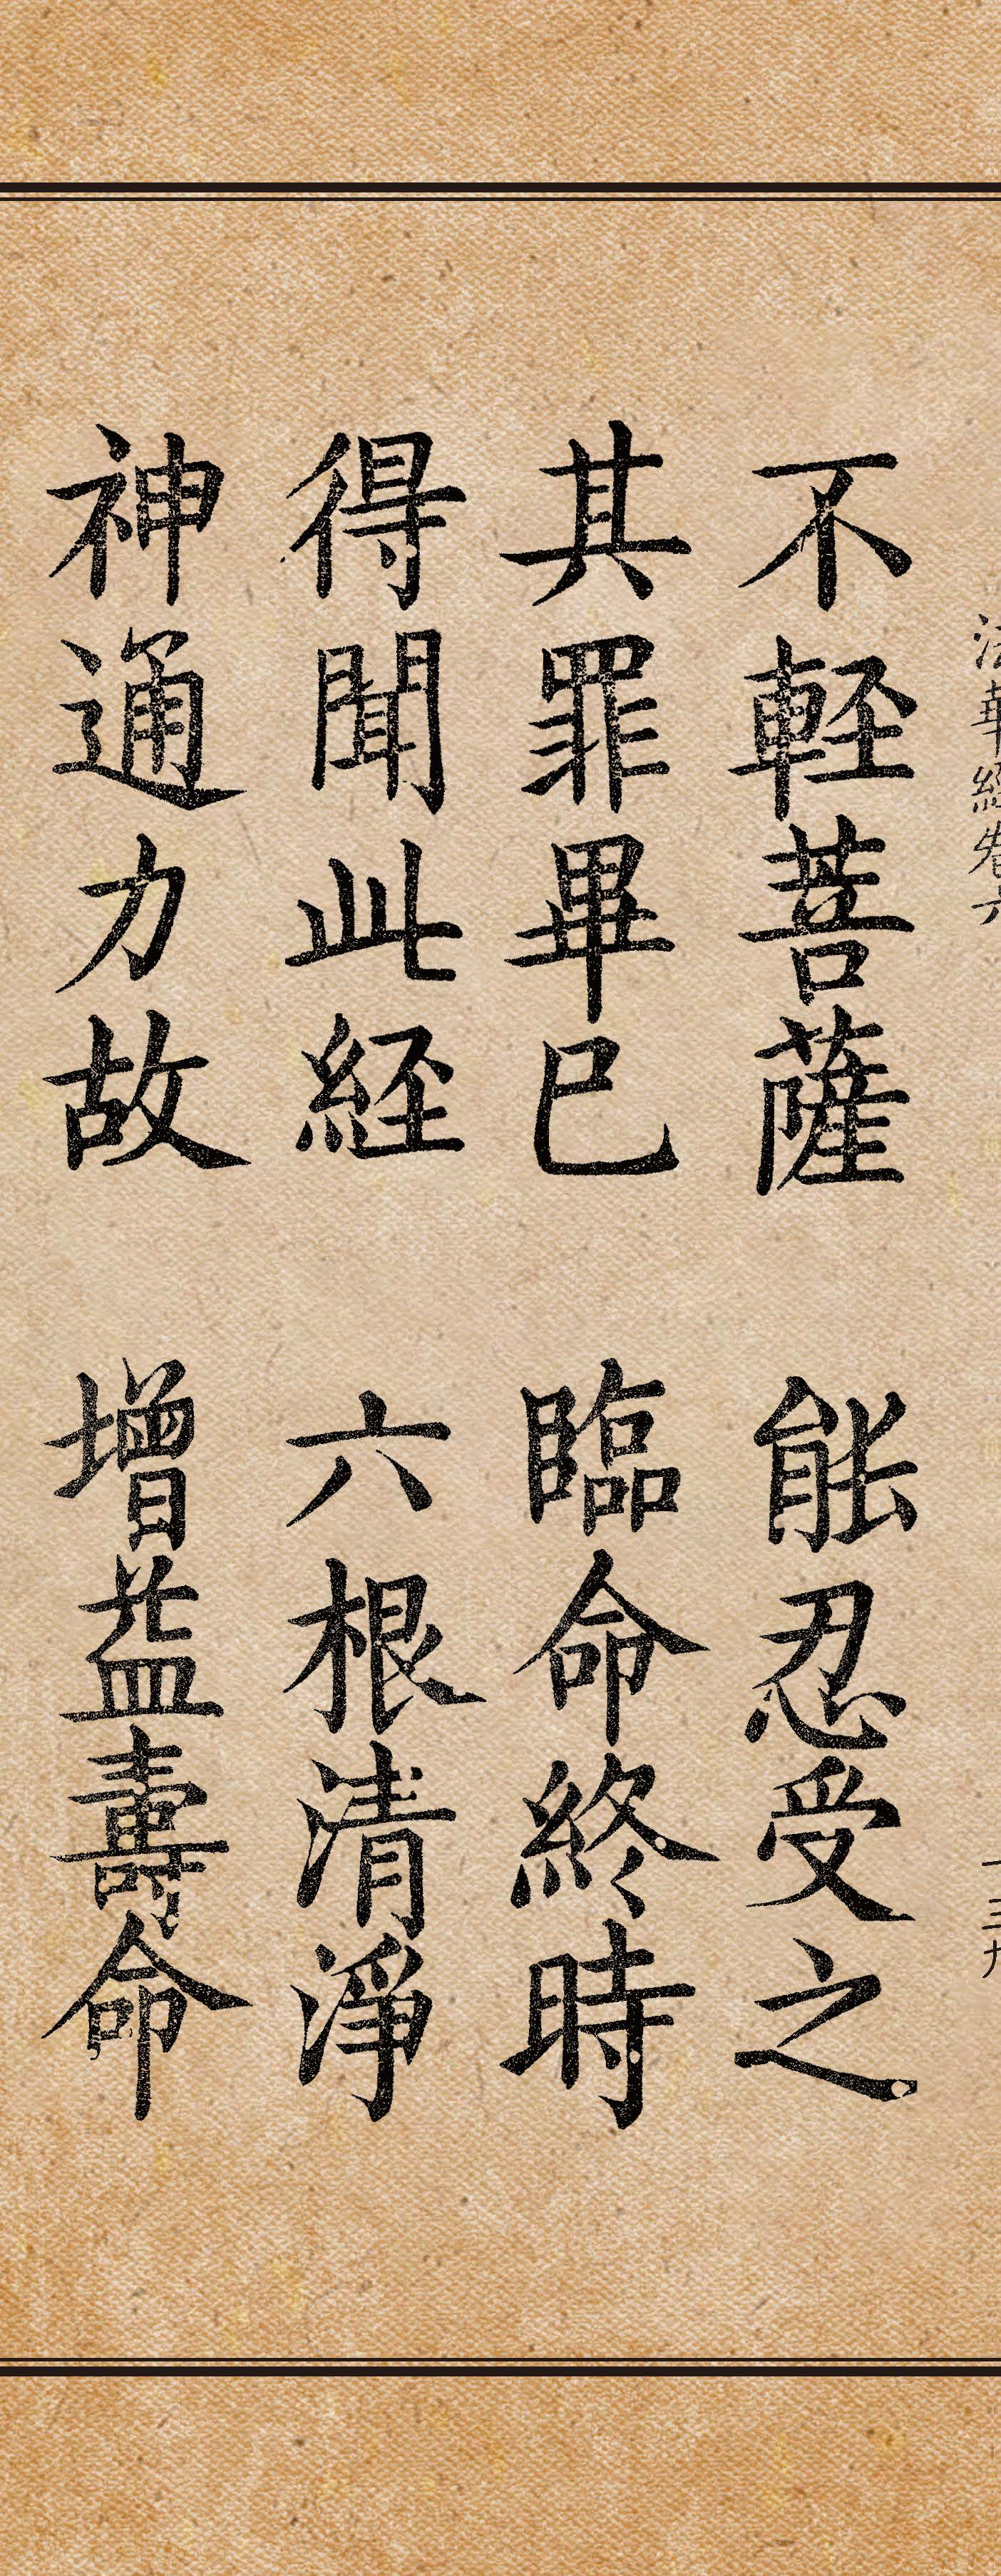 法華經卷六
一三九
不軽菩薩 能忍受之
其罪畢已 臨命終時
得聞此経 六根清淨
神通力故 增益壽命